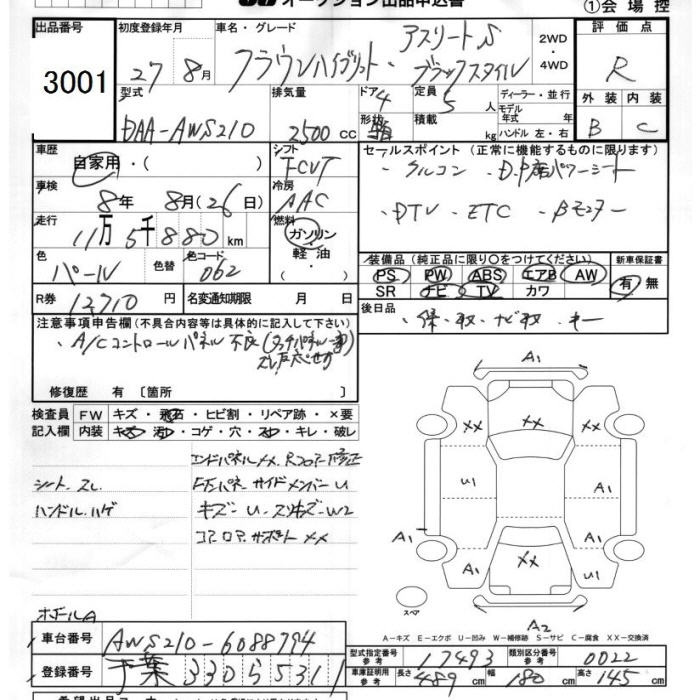 オークション出品申込書
①会場控
出品番号
3001
初度登録年月
27年 8月
車名・グレード
クラウンハイブリット・アスリートS ブラックスタイル
2WD・4WD
評価点
R
外装 内装
B C
型式
DAA-AWS210
排気量
2500 cc
ドア 4
形状 箱
定員 5人
積載 kg
ディーラー・並行
モデル年式 年式
ハンドル 左・右
車歴
自家用・( )
シフト
FCVT
セールスポイント (正常に機能するものに限ります)
・クルコン ・D.P席パワーシート
・DTV ・ETC ・Bモニター
車検
8年 8月(26日)
冷房
AAC
走行
11万5千880km
燃料
ガソリン・軽油・( )
色
パール
色替
色コード
062
装備品 (純正品に限り○をつけてください)
PS PW ABS エアB AW
SR ナビ TV カワ
新車保証書
有・無
R券
12710円
名変通知期限 月 日
後日品
・保・取・ナビ取・キー
注意事項申告欄 (不具合内容等は具体的に記入して下さい)
・A/Cコントロールパネル不良(タッチパネル一部)
修復歴 有 〔箇所 〕
検査員記入欄
FW キズ・飛石・ヒビ割・リペア跡・×要
内装 キズ・汚れ・コゲ・穴・スレ・キレ・破レ
エンドパネルXX.Rフロアー修正
シート.スレ
ハンドル.ハゲ
サイドメンバーU
キズ・U・スリキズ・W2
コアロアサポートXX
A1
XX XX XX
U1
A1
A1 XX A1
A1 U1
スペア
A2
A-キズ E-エクボ U-凹み W-補修跡 S-サビ C-腐食 XX-交換済
車台番号
AWS210-6088794
登録番号
千葉 330 5 5311
型式指定番号 参考
17493
類別区分番号 参考
0022
車庫証明用 参考
長さ 489cm 幅 180cm 高さ 145cm